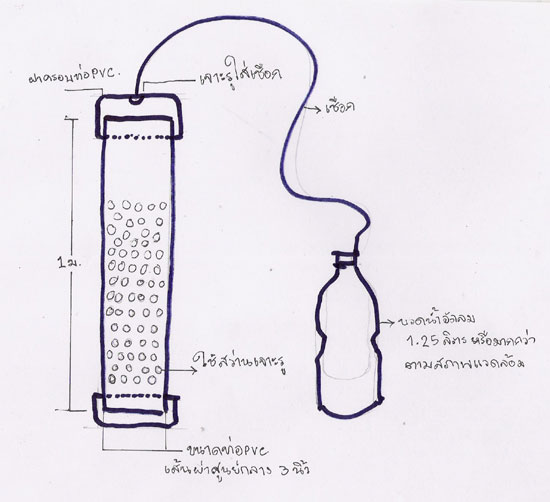 ฝาครอบท่อPVC.
เจาะรูใส่เชือก
เชือก
1ม.
ขวดน้ำอัดลม
1.25 ลิตร หรือมากกว่า
ตามสภาพแวดล้อม
ใช้สว่านเจาะรู
ขนาดท่อPVC
เส้นผ่าศูนย์กลาง 3นิ้ว